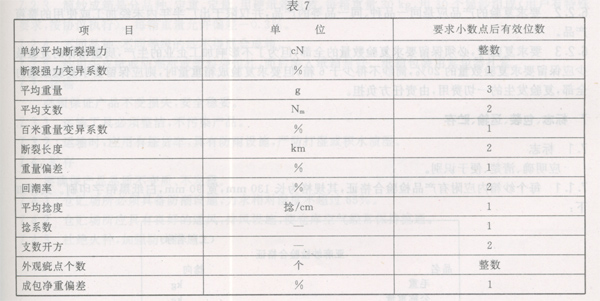 表 7
项 目 单 位 要求小数点后有效位数
单纱平均断裂强力 cN 整数
断裂强力变异系数 % 1
平均重量 g 3
平均支数 Nm 2
百米重量变异系数 % 1
断裂长度 km 2
重量偏差 % 1
回潮率 % 2
平均捻度 捻/cm 1
捻系数 — 1
支数开方 — 2
外观疵点个数 个 整数
成包净重偏差 % 1